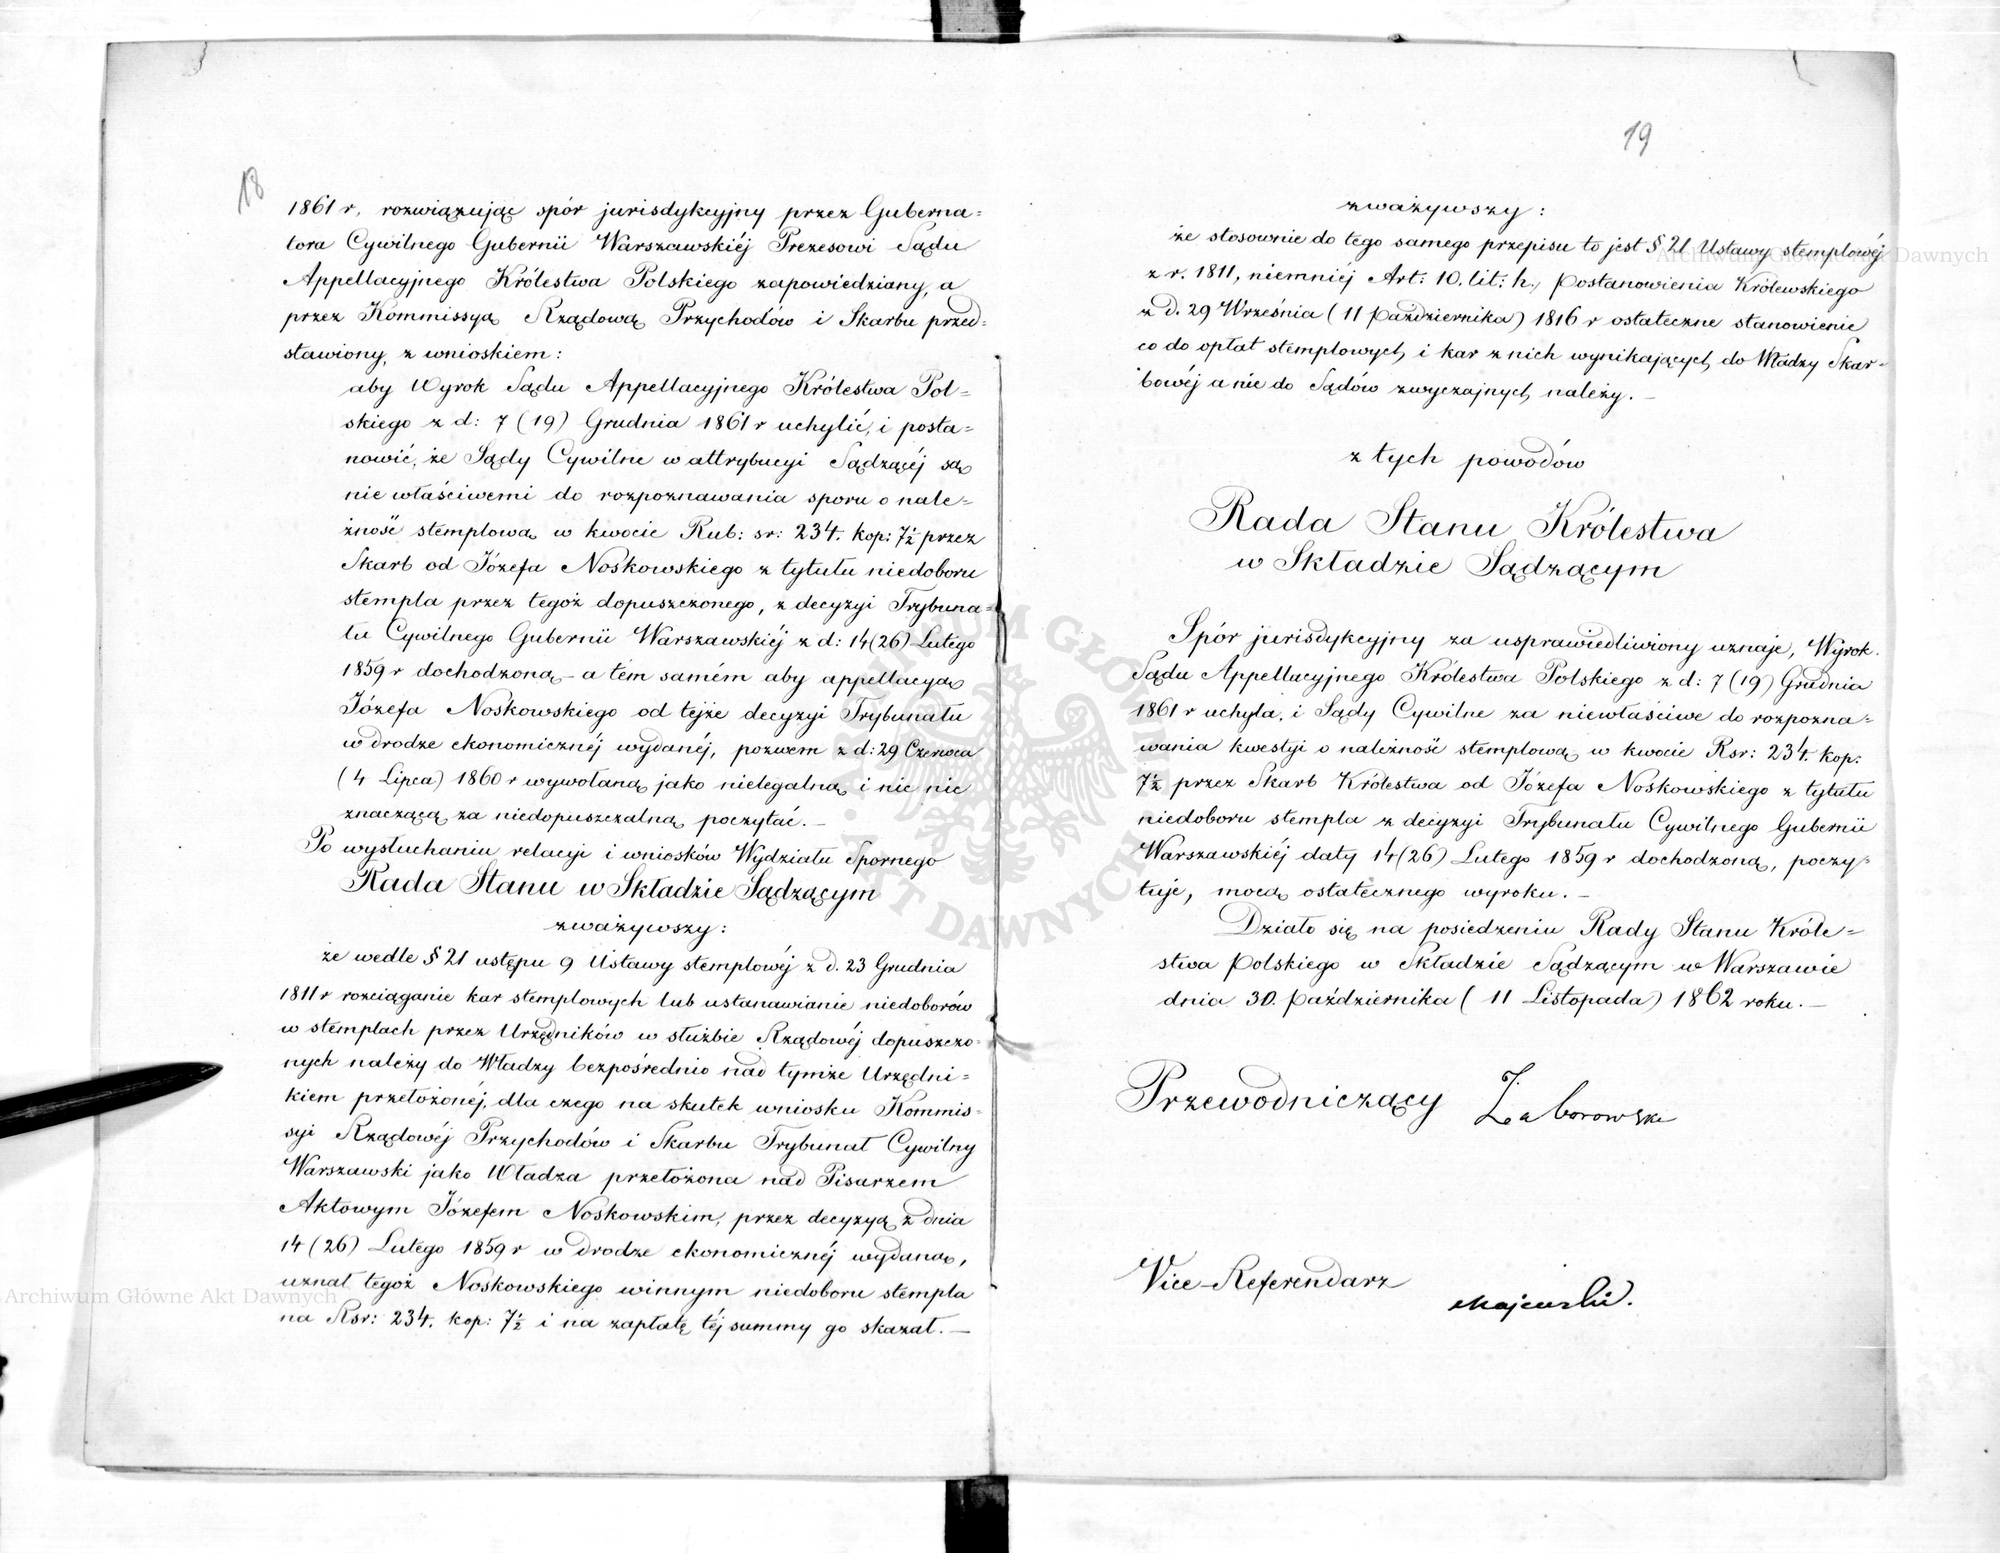 18
1861 r. rozwiązując spór jurisdykcyjny przez Guberna=
tora Cywilnego Gubernii Warszawskiéj Prezesowi Sądu
Appellacyjnego Królestwa Polskiego zapowiedziany, a
przez Kommissyą Rządową Przychodów i Skarbu przed=
stawiony, z wnioskiem:
aby Wyrok Sądu Appellacyjnego Królestwa Pol=
skiego z d: 7 (19) Grudnia 1861 r uchylić, i posta=
nowić, że Sądy Cywilne w attrybucyi Sądzącéj są
nie właściwemi do rozpoznawania sporu o nale=
żność stemplową w kwocie Rub: sr: 234. kop: 7½ przez
Skarb od Józefa Noskowskiego z tytułu niedoboru
stempla przez tegoż dopuszczonego, z decyzyi Trybuna=
łu Cywilnego Gubernii Warszawskiéj z d: 14 (26) Lutego
1859 r dochodzoną – a tém samém aby appellacyą
Józefa Noskowskiego od tejże decyzyi Trybunału
w drodze ekonomicznéj wydanéj, pozwem z d: 29 Czerwca
(4 Lipca) 1860 r wywołaną jako nielegalną i nic nie
znaczącą za niedopuszczalną poczytać. –
Po wysłuchaniu relacyi i wniosków Wydziału Spornego
Rada Stanu w Składzie Sądzącym
zważywszy:
że wedle § 21 ustępu 9 Ustawy stemplowéj z d. 23 Grudnia
1811 r rozciąganie kar stemplowych lub ustanawianie niedoborów
w stemplach przez Urzędników w służbie Rządowéj dopuszczo=
nych należy do Władzy bezpośrednio nad tymże Urzędni=
kiem przełożonéj, dla czego na skutek wniosku Kommis=
syi Rządowéj Przychodów i Skarbu Trybunał Cywilny
Warszawski jako Władza przełożona nad Pisarzem
Aktowym Józefem Noskowskim, przez decyzyą z dnia
14 (26) Lutego 1859 r w drodze ekonomicznéj wydaną,
uznał tegoż Noskowskiego winnym niedoboru stempla
na Rsr: 234. kop: 7½ i na zapłatę téj summy go skazał. –
19
zważywszy:
że stosownie do tego samego przepisu to jest § 21 Ustawy stemplowéj
z r. 1811, niemniéj Art: 10. lit: h., Postanowienia Królewskiego
z d. 29 Września (11 Października) 1816 r ostateczne stanowienie
co do opłat stemplowych i kar z nich wynikających do Władzy Skar=
bowéj a nie do Sądów zwyczajnych należy. –
z tych powodów
Rada Stanu Królestwa
w Składzie Sądzącym
Spór jurisdykcyjny za usprawiedliwiony uznaje, Wyrok
Sądu Appellacyjnego Królestwa Polskiego z d: 7 (19) Grudnia
1861 r uchyla, i Sądy Cywilne za niewłaściwe do rozpozna=
wania kwestyi o należność stemplową w kwocie Rsr: 234. kop:
7½ przez Skarb Królestwa od Józefa Noskowskiego z tytułu
niedoboru stempla z decyzyi Trybunału Cywilnego Gubernii
Warszawskiéj daty 14 (26) Lutego 1859 r dochodzoną, poczy=
tuje, mocą ostatecznego wyroku. –
Działo się na posiedzeniu Rady Stanu Króle=
stwa Polskiego w Składzie Sądzącym w Warszawie
dnia 30. Października (11 Listopada) 1862 roku. –
Przewodniczący Zaborowski
Vice-Referendarz Majewski.
Archiwum Główne Akt Dawnych
Archiwum Główne Akt Dawnych
ARCHIWUM GŁÓWNE AKT DAWNYCH